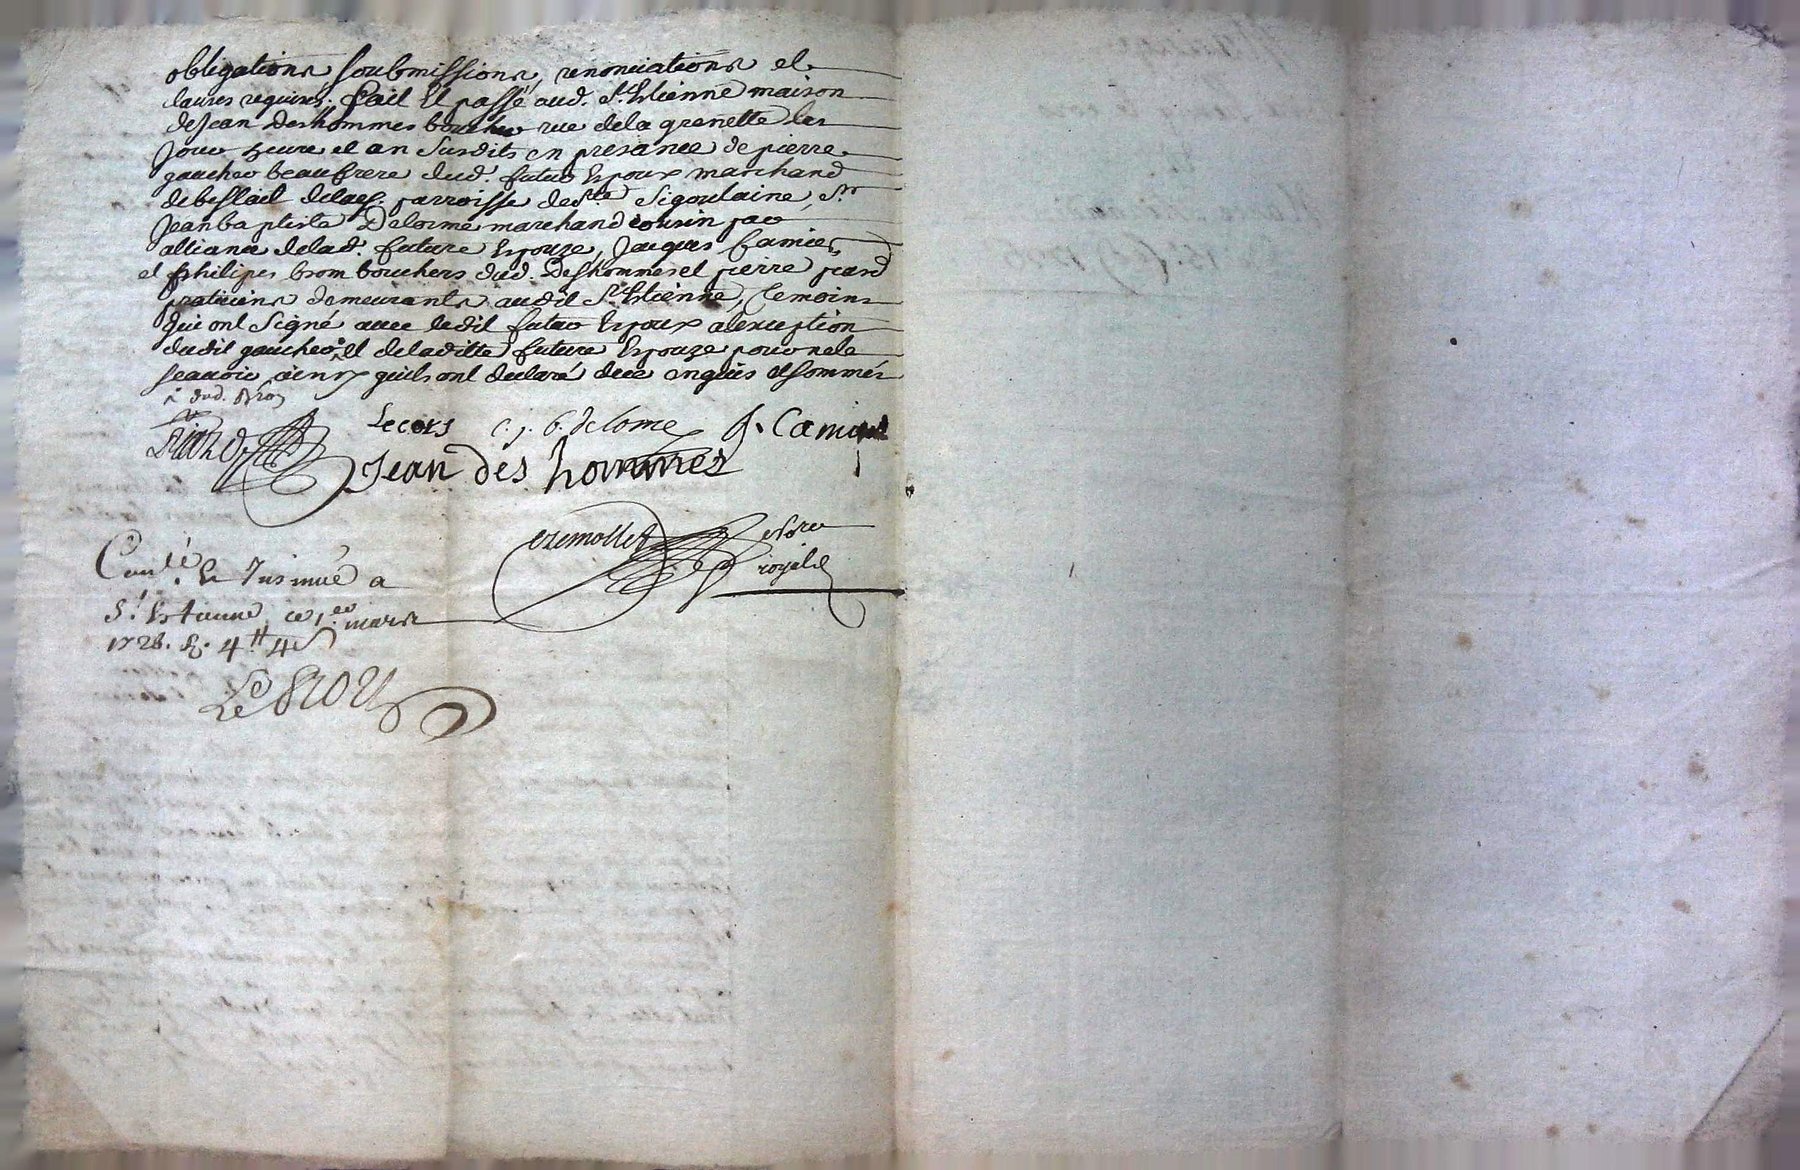 obligations soubmissions, renonciations et
clauses requises. fait Et passé aud. St. Estienne maison
de Jean Deshommes boucher rue dela grenette les
Jour heure et an susdits en presance de pierre
gaucher beaufrere dud. futur Espoux marchand
de bestail delad. parroisse de ste Sigoulaine, Sr.
Jean baptiste Delorme marchand cousin par
alliance delad. future Espouze, Jacques Camier,
et philipes brom bouchers dud. Deshommes et pierre piard
praticiens demeurants audit St. Estienne, temoins
qui ont signé avec ledit futur Espoux alexception
dudit gaucher et deladitte future Espouze pour ne le
scavoir quils ont declaré de ce enquis et sommés
piard
Lecors c. j. b. delorme J. Camier
Jean des hommes
ezemollet nore
royal
Conlé. & Insinué a
St. Estienne ce 1er mars
1728. R. 4tt 4s